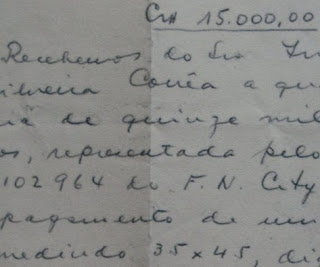 Cr$ 15.000,00
Recebemos do Snr
Silveira Corrêa a
de quinze mil
os, representada pelo
102964 do F. N. City
pagamento de um
medindo 35 x 45,